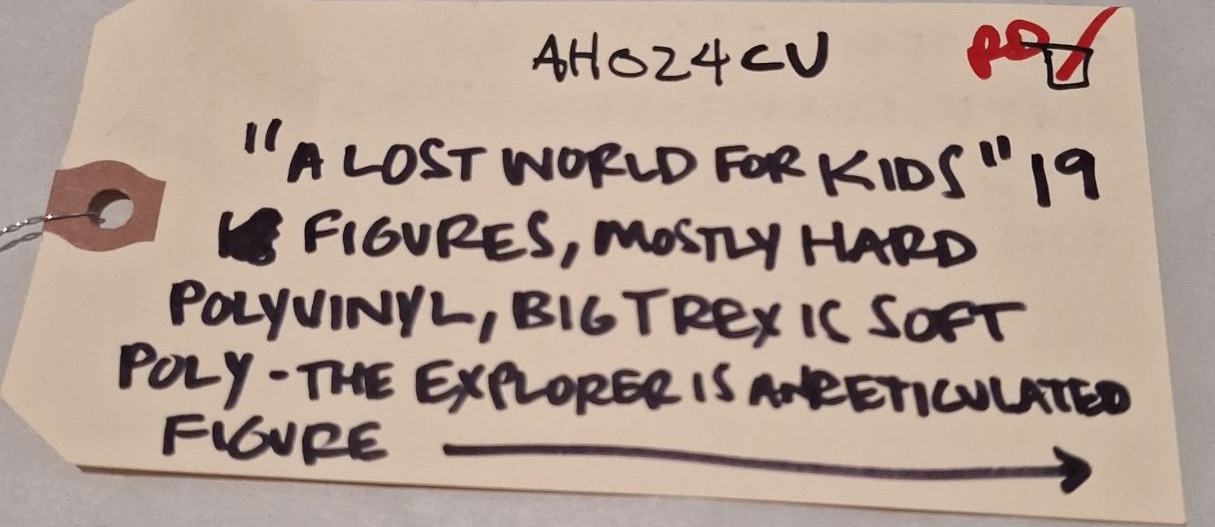 AH024CU
"A LOST WORLD FOR KIDS" 19
FIGURES, MOSTLY HARD
POLYVINYL, BIG T REX IS SOFT
POLY - THE EXPLORER IS AN RETICULATED
FIGURE